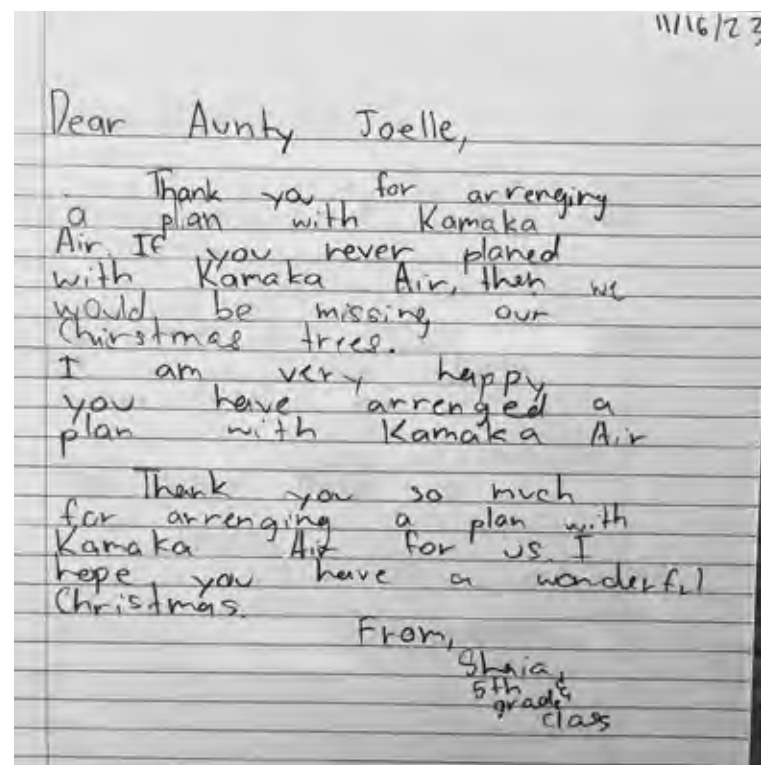 11/16/23
Dear Aunty Joelle,
Thank you for arrenging
a plan with Kamaka
Air. If you never planed
with Kamaka Air, then we
would be missing our
Chirstmas trees.
I am very happy
you have arrenged a
plan with Kamaka Air
Thank you so much
for arrenging a plan with
Kamaka Air for us. I
hope you have a wonderful
Christmas.
From,
Shaia,
5th &
grade
class